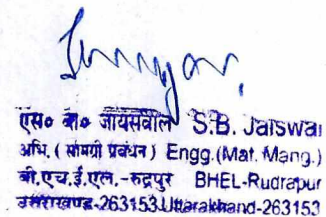 एस० बी० जायसवाल S.B. Jaiswal
अभि. ( सामग्री प्रबंधन ) Engg.(Mat. Mang.)
बी.एच.ई.एल.-रुद्रपुर BHEL-Rudrapur
उत्तराखण्ड-263153 Uttarakhand-263153